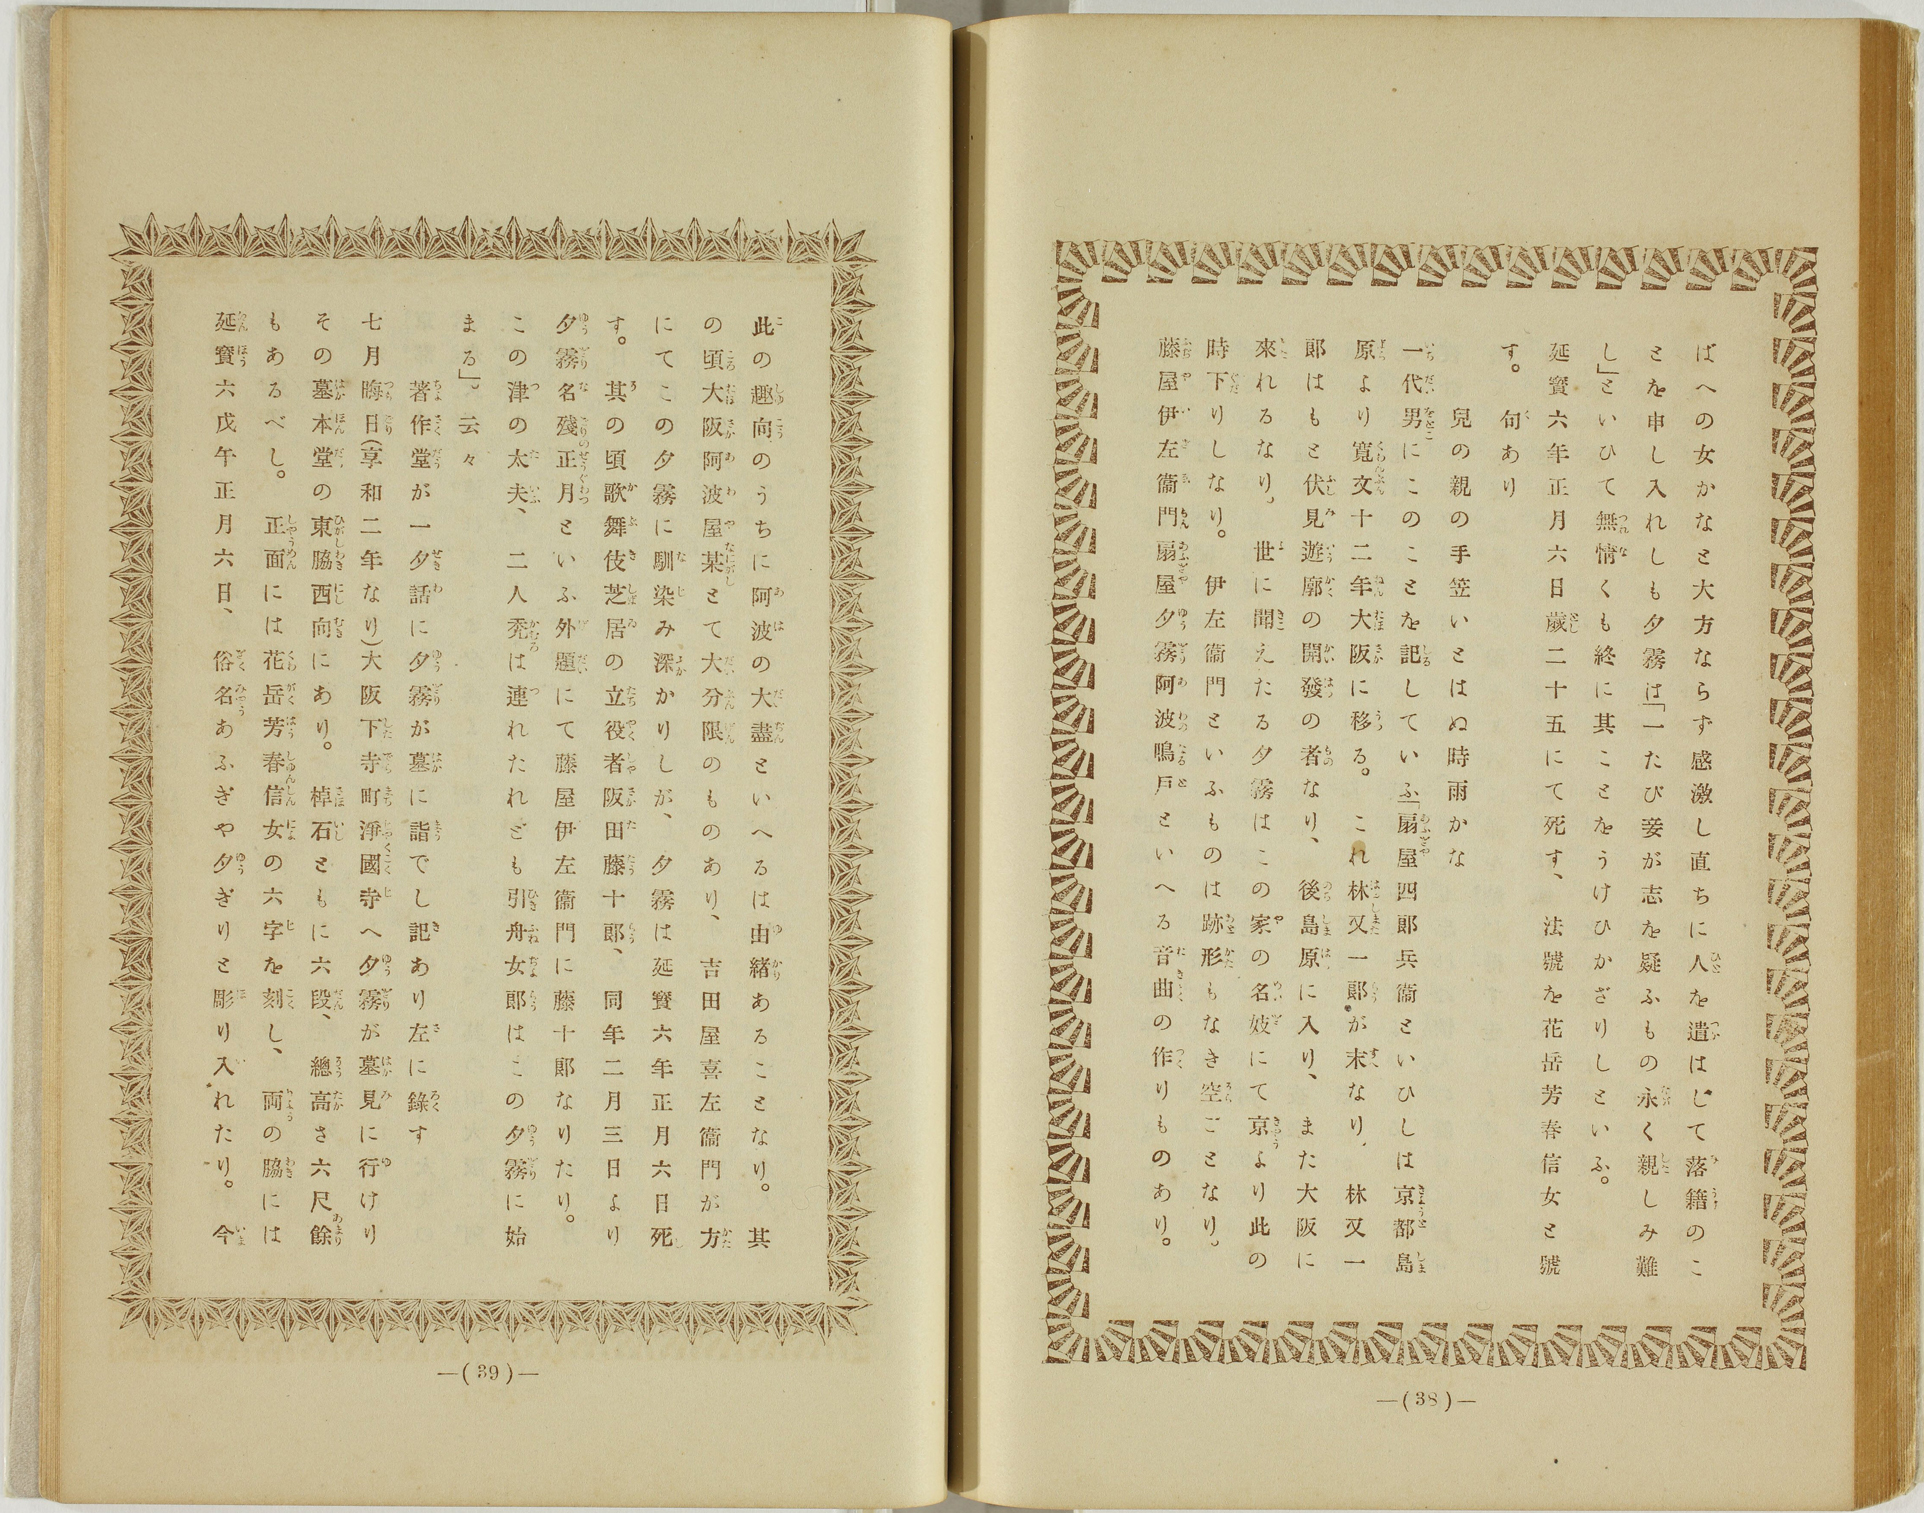 ばへの女かなと大方ならず感激し直ちに人を遣はして落籍のこ
とを申し入れしも夕霧は「一たび妾が志を疑ふもの永く親しみ難
し」といひて無情くも終に其ことをうけひかざりしといふ。
延寳六年正月六日歲二十五にて死す、法號を花岳芳春信女と號
す。句あり
兒の親の手笠いとはぬ時雨かな
一代男にこのことを記していふ「扇屋四郎兵衞といひしは京都島
原より寬文十二年大阪に移る。これ林又一郎が末なり、林又一
郎はもと伏見遊廓の開發の者なり、後島原に入り、また大阪に
來れるなり。世に聞えたる夕霧はこの家の名妓にて京より此の
時下りしなり。伊左衞門といふものは跡形もなき空ごとなり。
藤屋伊左衞門扇屋夕霧阿波鳴戶といへる音曲の作りものあり。
—(38)—
此の趣向のうちに阿波の大盡といへるは由緖あることなり。其
の頃大阪阿波屋某とて大分限のものあり、吉田屋喜左衞門が方
にてこの夕霧に馴染み深かりしが、夕霧は延寳六年正月六日死
す。其の頃歌舞伎芝居の立役者阪田藤十郎、同年二月三日より
夕霧名殘正月といふ外題にて藤屋伊左衞門に藤十郎なりたり。
この津の太夫、二人禿は連れたれども引舟女郎はこの夕霧に始
まる」。云々
著作堂が一夕話に夕霧が墓に詣でし記あり左に錄す
七月晦日(享和二年なり)大阪下寺町淨國寺へ夕霧が墓見に行けり
その墓本堂の東脇西向にあり。棹石ともに六段、總高さ六尺餘
もあるべし。正面には花岳芳春信女の六字を刻し、兩の脇には
延寳六戊午正月六日、俗名あふぎや夕ぎりと彫り入れたり。今
—(39)—